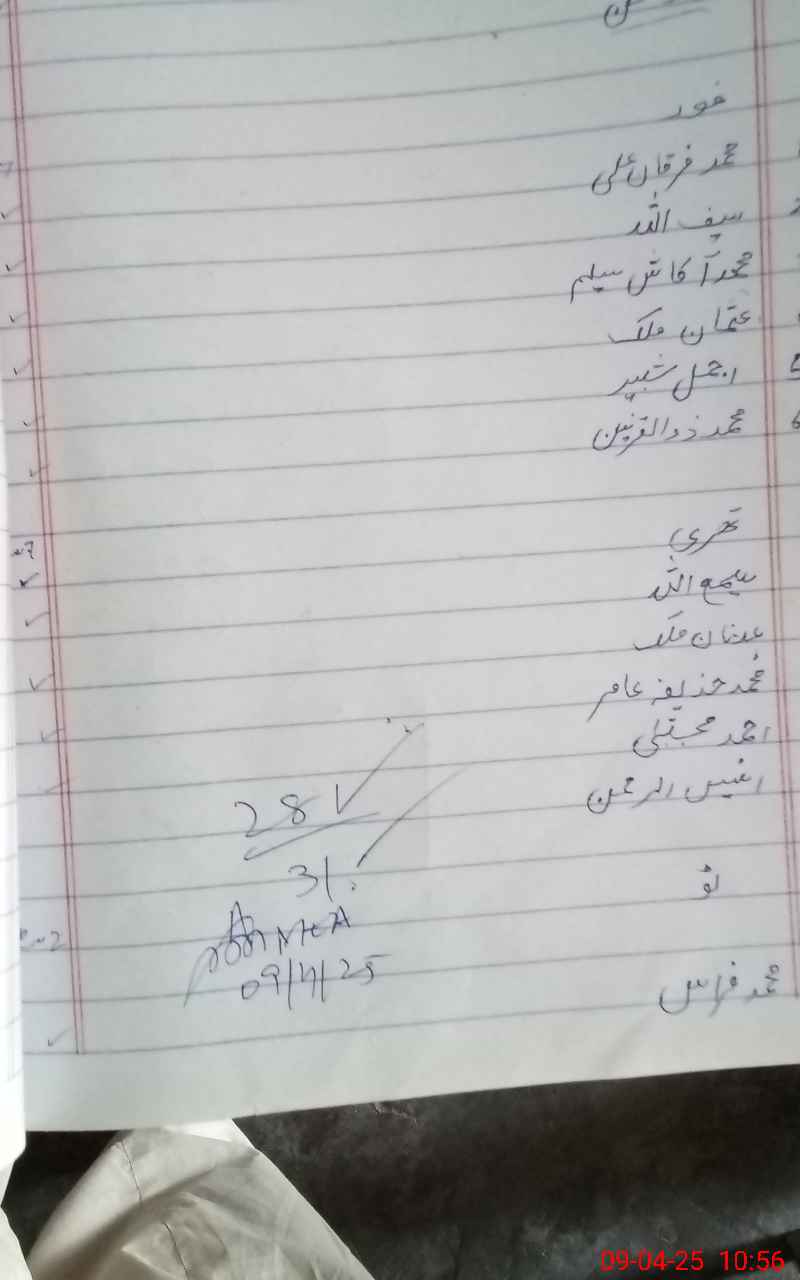 فور
محمد فرقان علی
سیف اللہ
محمد آکاش سلیم
عثمان ملک
5 اجمل شبیر
6 محمد ذوالقرنین
تھری
سمیع اللہ
عدنان ملک
محمد حذیفہ عامر
احمد مجتبیٰ
انیس الرحمن
28
31
ٹو
09/4/25
محمد فراس
09-04-25 10:56